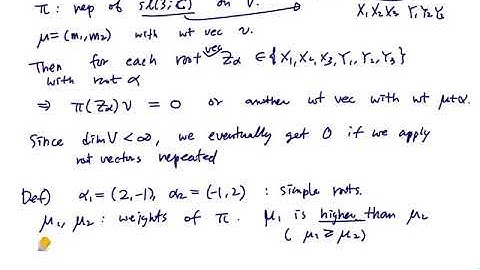 π: rep of sl(3;ℂ) on V.
X₁X₂X₃ Y₁Y₂Y₃
μ=(m₁,m₂) with wt vec v.
Then for each root vec Zα ∈{X₁,X₂,X₃,Y₁,Y₂,Y₃}
with root α
⇒ π(Zα)v = 0 or another wt vec with wt μ+α.
Since dim V < ∞, we eventually get 0 if we apply
root vectors repeated
Def) α₁=(2,-1), α₂=(-1,2) : simple roots.
μ₁, μ₂ : weights of π. μ₁ is higher than μ₂
( μ₁ ≽ μ₂)